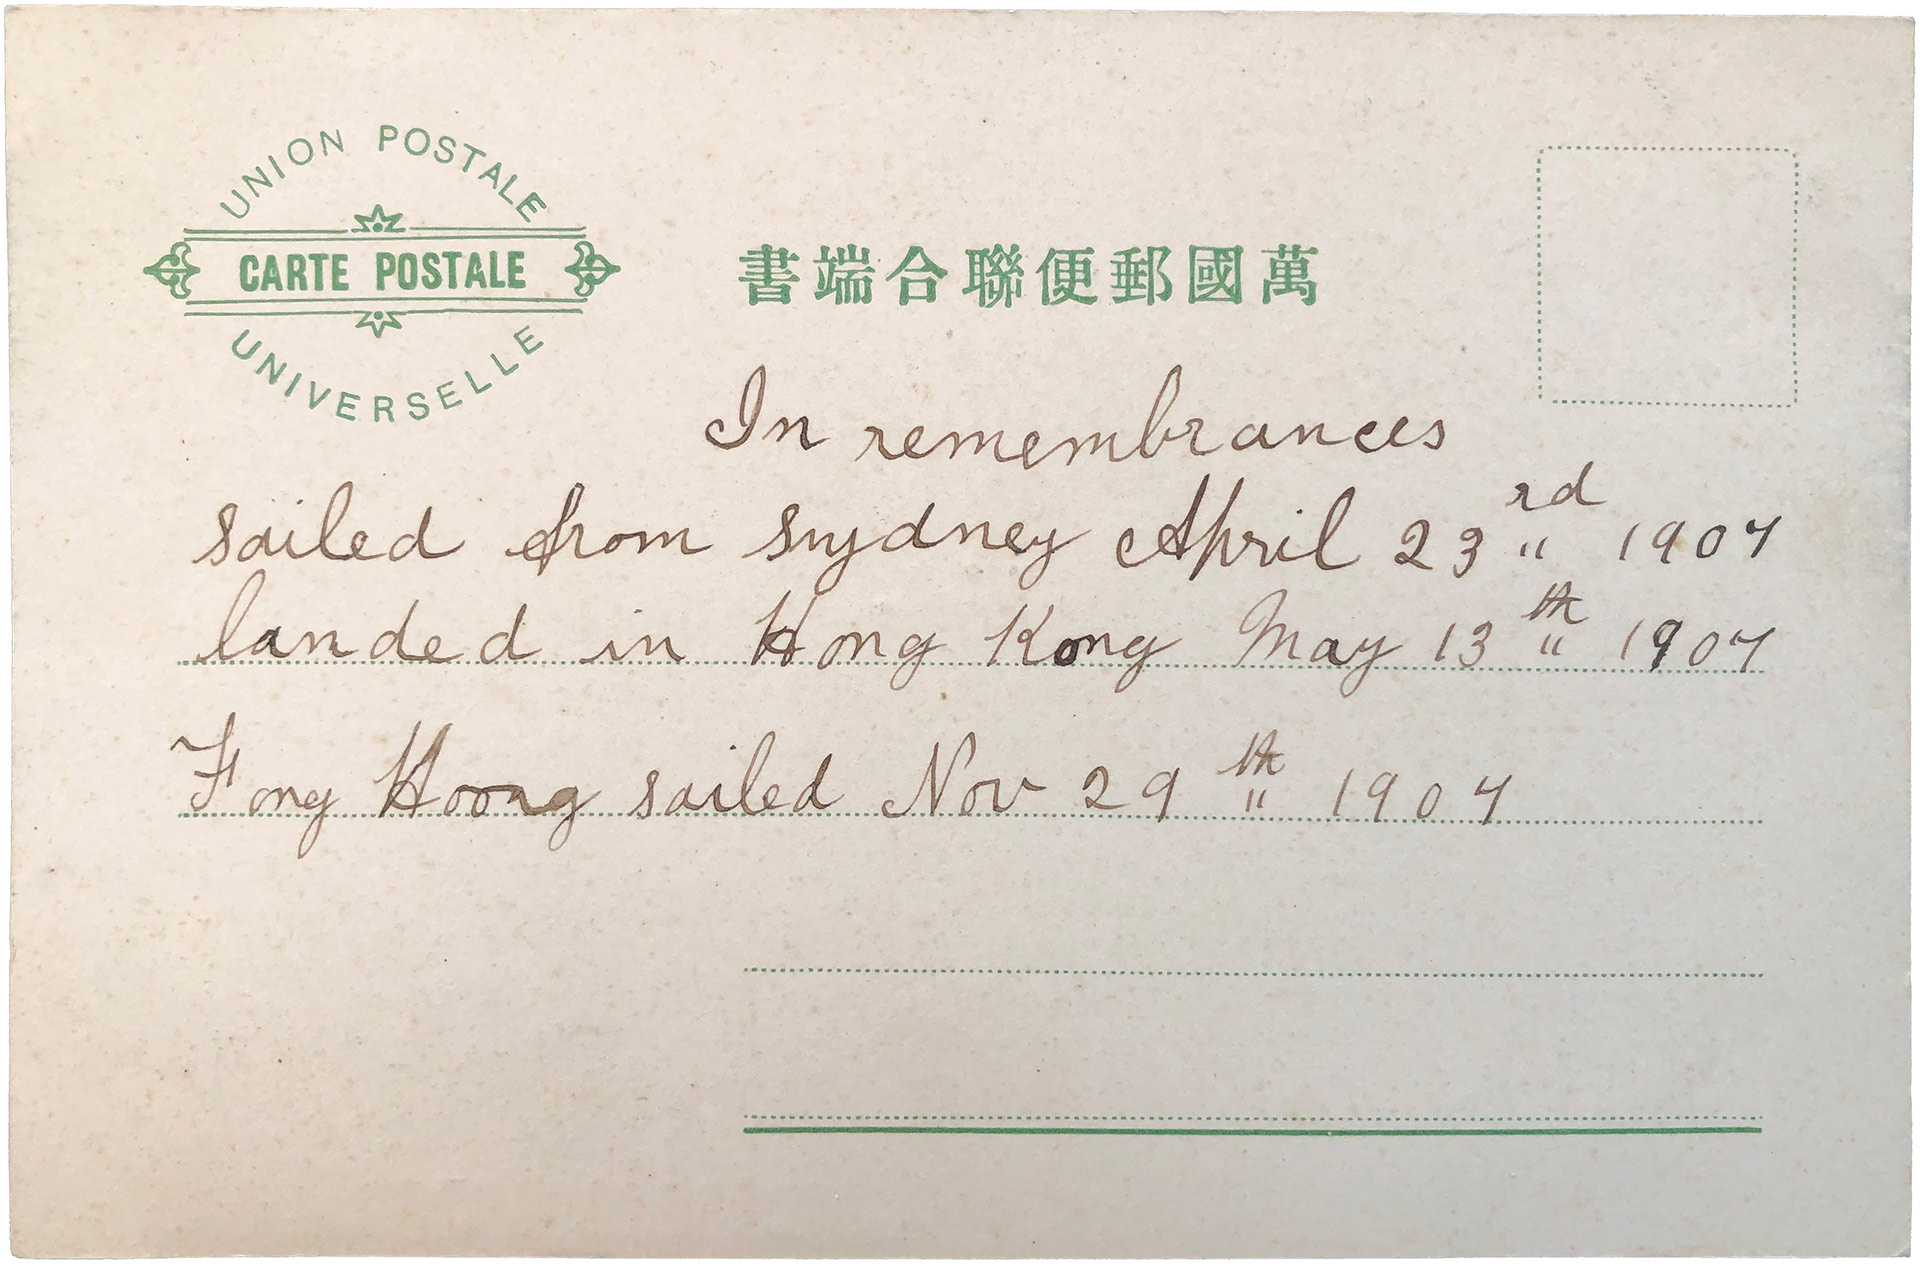 UNION POSTALE
CARTE POSTALE
UNIVERSELLE
書端合聯便郵國萬
In remembrances
sailed from Sydney April 23rd " 1907
landed in Hong Kong May 13th " 1907
Fong Hoong sailed Nov 29th " 1907